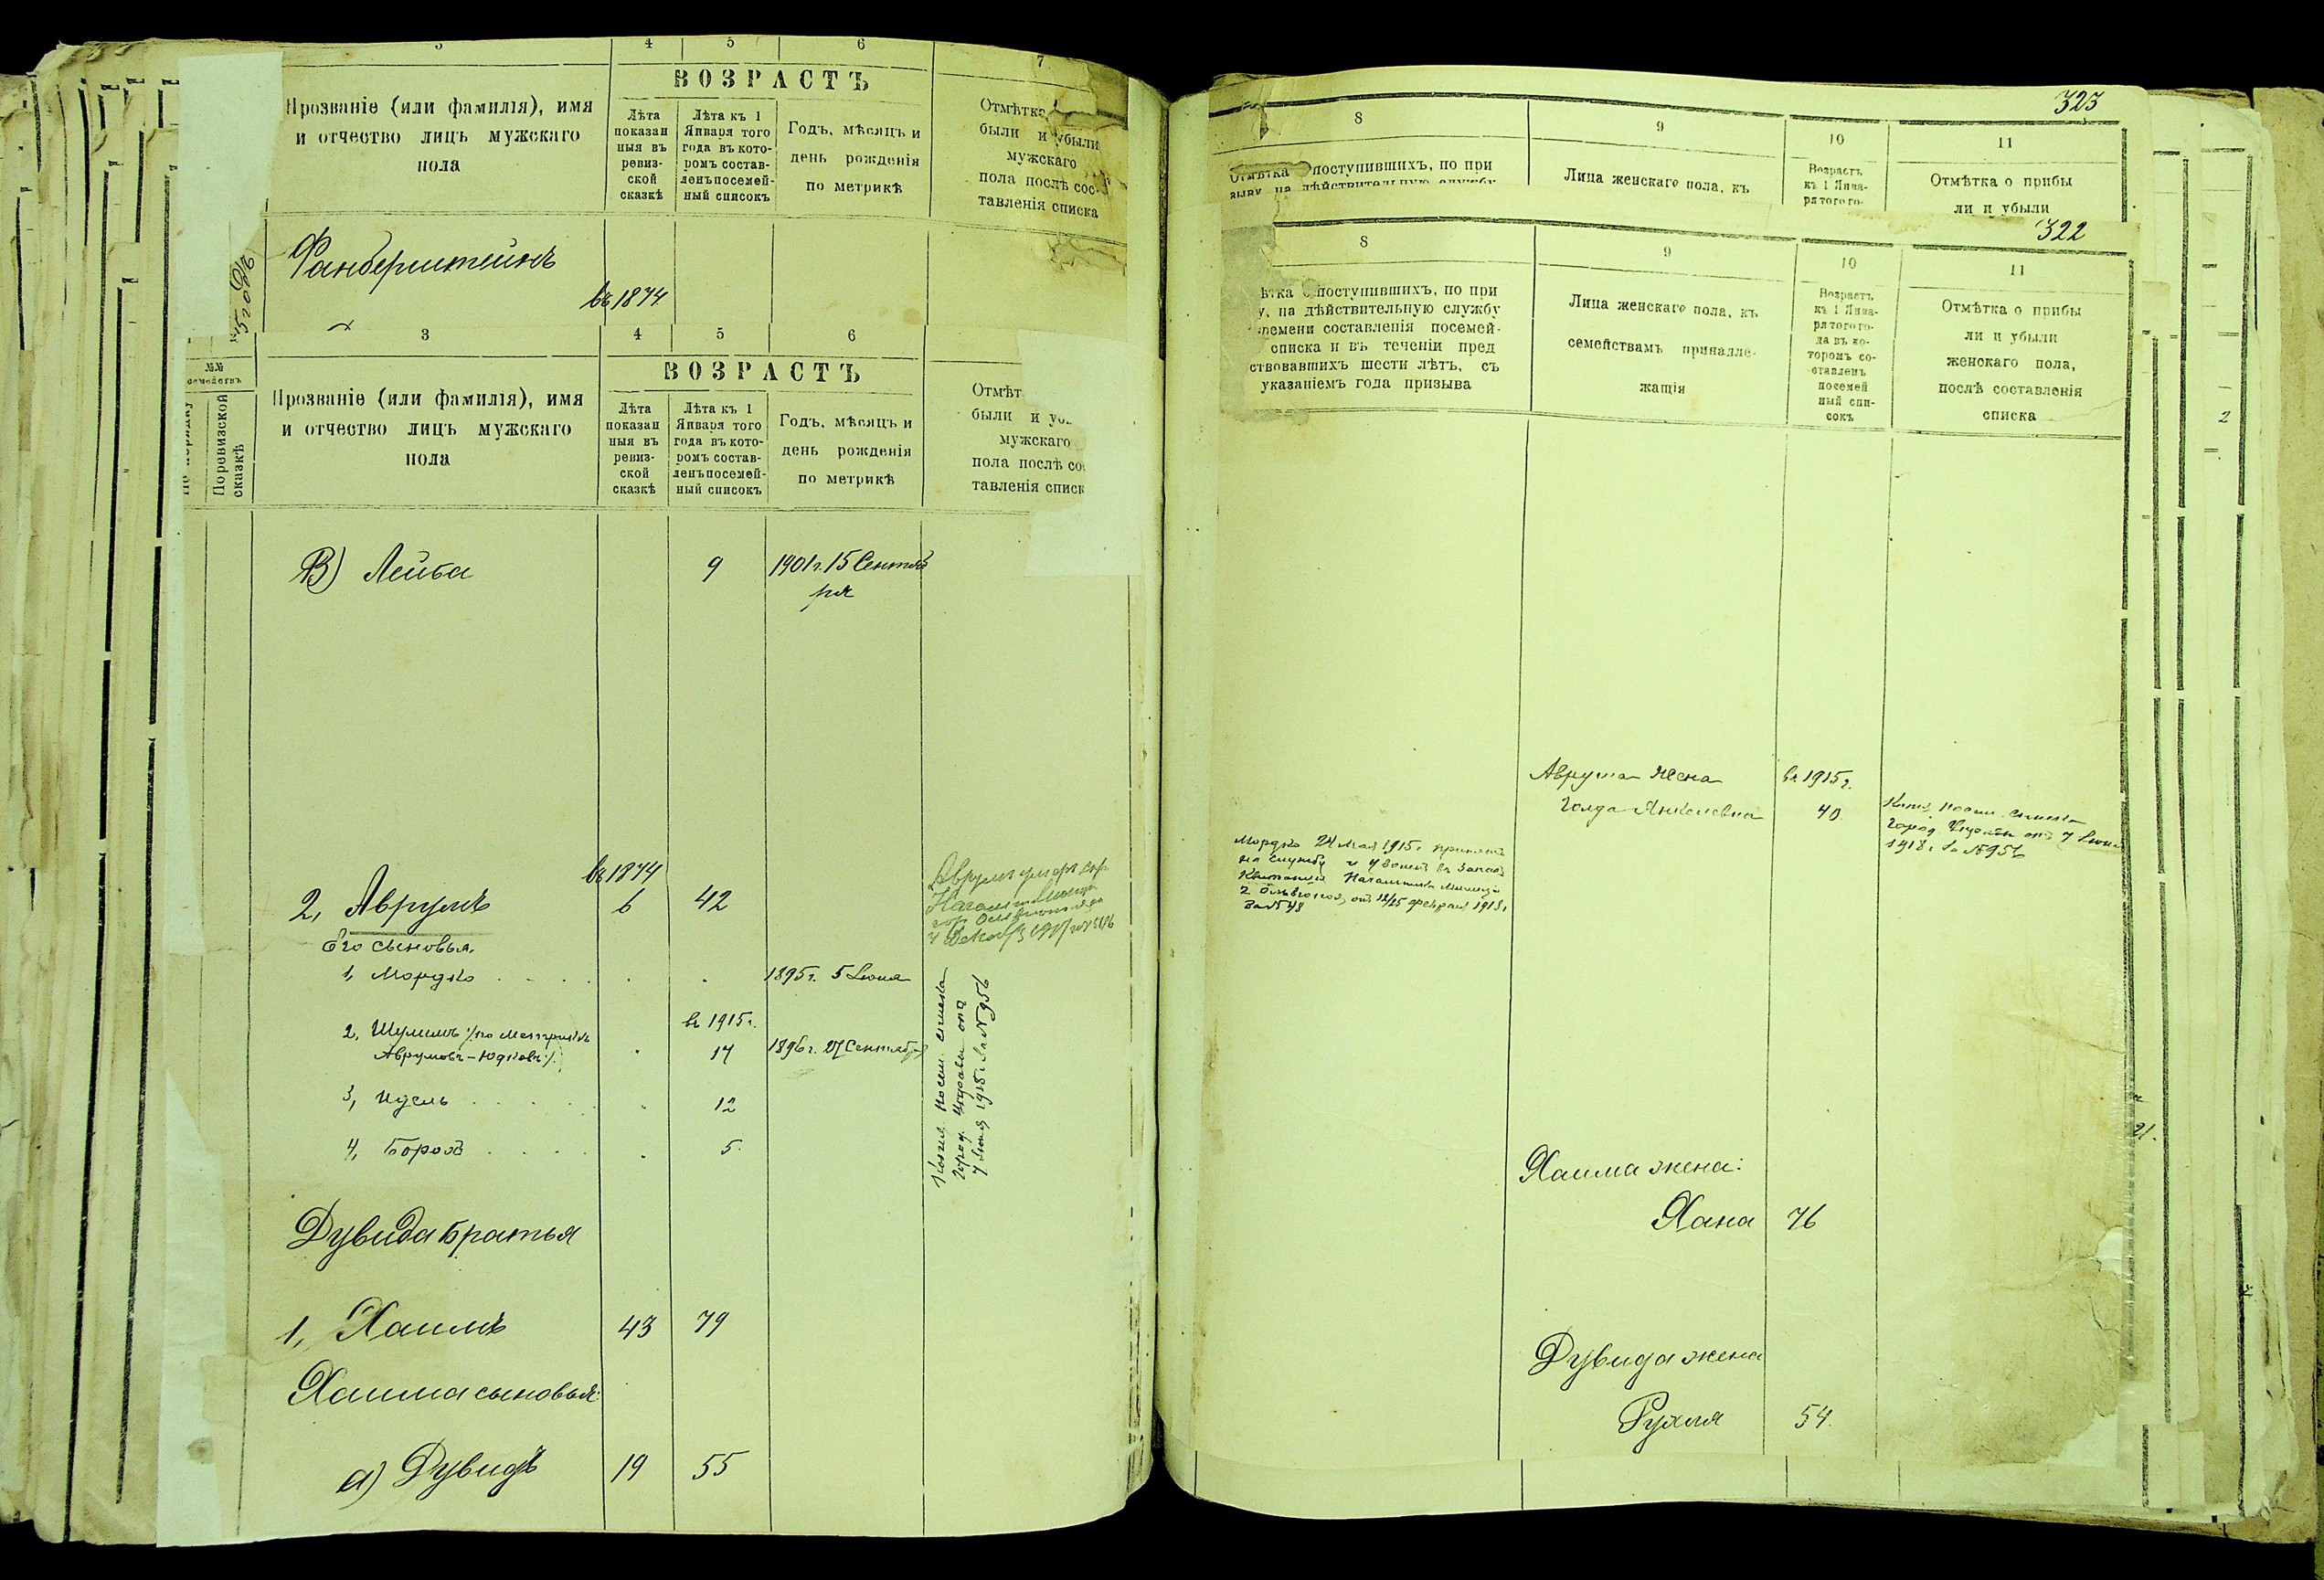 3 4 5 6 7
ВОЗРАСТЪ
Прозваніе (или фамилія), имя
и отчество лицъ мужскаго
пола
Лѣта
показан
ныя въ
ревиз-
ской
сказкѣ
Лѣта къ 1
Января того
года въ кото-
ромъ состав-
ленъ посемей-
ный списокъ
Годъ, мѣсяцъ и
день рожденія
по метрикѣ
Отмѣтка
были и убыли
мужскаго
пола послѣ сос-
тавленія списка
въ 1874
3 4 5 6
№№
семействъ
По порядку
По ревизской
сказкѣ
ВОЗРАСТЪ
Прозваніе (или фамилія), имя
и отчество лицъ мужскаго
пола
Лѣта
показан
ныя въ
ревиз-
ской
сказкѣ
Лѣта къ 1
Января того
года въ кото-
ромъ состав-
ленъ посемей-
ный списокъ
Годъ, мѣсяцъ и
день рожденія
по метрикѣ
Отмѣт
были и у
мужскаго
пола послѣ со
тавленія списк
В) Лейба 9 1901 г. 15 Сентяб
ря
въ 1874
2, Аврумъ 6 42
Его сыновья.
1, Мордко 1895 г. 5 Іюня
въ 1915 г.
2, Шулимъ /: по метрикѣ
Аврумовъ-Юдковъ :/ 17 1896 г. 27 Сентября
3, Идель 12
4, Борохъ 5
Копія посем. списка
Город. Управы отъ
7 Іюня 1918 г. за № 956
Дувида братья
1, Хаимъ 43 79
Хаима сыновья:
а) Дувидъ 19 55
323
8 9 10 11
Отмѣтка о поступившихъ, по при
зыву на дѣйствительную службу
Лица женскаго пола, къ
Возрастъ
къ 1 Янва-
ря того го-
Отмѣтка о прибы
ли и убыли
322
8 9 10 11
ѣтка о поступившихъ, по при
у, на дѣйствительную службу
ремени составленія посемей-
списка и въ теченіи пред
ствовавшихъ шести лѣтъ, съ
указаніемъ года призыва
Лица женскаго пола, къ
семействамъ принадле-
жащія
Возрастъ
къ 1 Янва-
ря того го-
да въ ко-
торомъ со-
ставленъ
посемей
ный спи-
сокъ
Отмѣтка о прибы
ли и убыли
женскаго пола,
послѣ составленія
списка
Аврума жена въ 1915 г.
Голда Янкелевна 40
Копія посем. списка
Город. Управы отъ 7 Іюня
1918 г. за № 956
Мордко 24 Мая 1915 г. принятъ
на службу и уволенъ въ запасъ
Начальника Милиціи
г. Ольвіополя, отъ 12/25 февраля 1918 г.
за № 48
Хаима жена:
Хана 76
Дувида жена
Рухля 54
2
21.